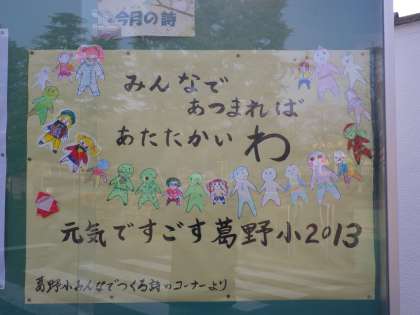 今月の詩
みんなで
あつまれば
あたたかい わ
元気ですごす葛野小2013
葛野小みんなでつくる詩のコーナーより